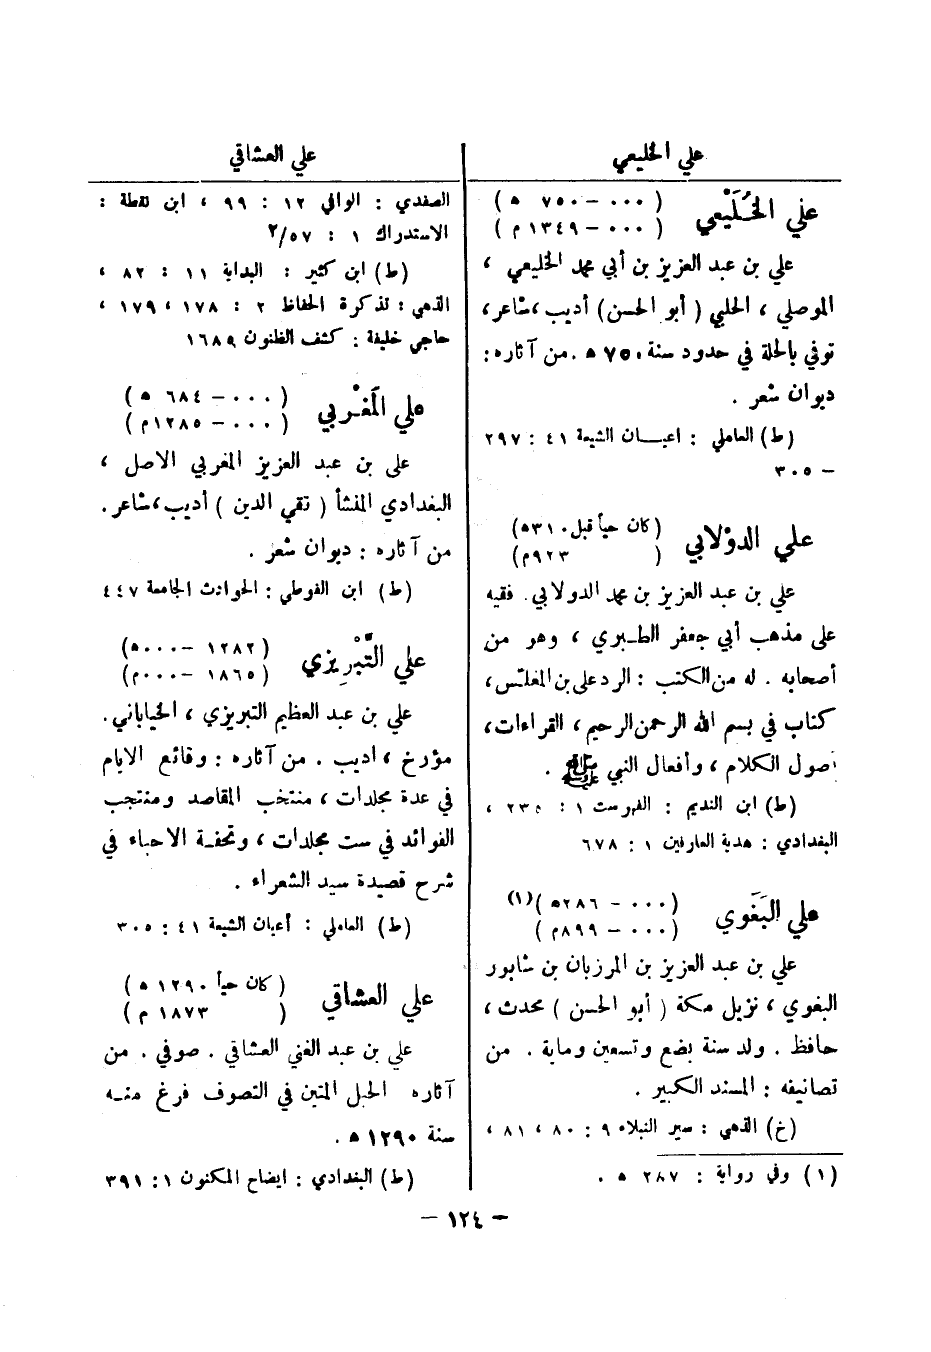 علي الخليعي
علي الخُلَيْعي
(٠٠٠ – ٧٥٠ ه)
(٠٠٠ – ١٣٤٩ م)
علي بن عبد العزيز بن أبي محمد الخليعي ،
الموصلي ، الحلبي ( أبو الحسن ) أديب ، شاعر ،
توفي بالحلة في حدود سنة ٧٥٠ ه . من آثاره :
ديوان شعر .
(ط) العاملي : اعيــان الشيعة ٤١ : ٢٩٧
– ٣٠٥
علي الدوْلابي
(كان حياً قبل ٣١٠ه)
( ٩٢٣م)
علي بن عبد العزيز بن محمد الدولابي . فقيه
على مذهب أبي جعفر الطـبري ، وهو من
أصحابه . له من الكتب : الرد على بن المغلتس ،
كتاب في بسم الله الرحمن الرحيم ، القراءات ،
أصول الكلام ، وأفعال النبي ﷺ .
(ط) ابن النديم : الفهرست ١ : ٢٣٥ ،
البغدادي : هدية العارفين ١ : ٦٧٨
علي البَغَوي
(٠٠٠ – ٢٨٦ه) (١)
(٠٠٠ – ٨٩٩م)
علي بن عبد العزيز بن المرزبان بن شابور
البغوي ، نزيل مكة ( أبو الحسن ) محدث ،
حافظ . ولد سنة بضع وتسعين وماية . من
تصانيفه : المسند الكبير .
(خ) الذهبي : سير النبلاء ٩ : ٨٠ ، ٨١ ،
(١) وفي رواية : ٢٨٧ ه .
علي العشاقي
الصفدي : الوافي ١٢ : ٩٩ ، ابن نقطة :
الاستدراك ١ : ٢/٥٧
(ط) ابن كثير : البداية ١١ : ٨٢ ،
الذهبي : تذكرة الحفاظ ٢ : ١٧٨ ، ١٧٩ ،
حاجي خليفة : كشف الظنون ١٦٨٩
علي المَغْربي
(٠٠٠ – ٦٨٤ ه)
(٠٠٠ – ١٢٨٥م)
على بن عبد العزيز المغربي الاصل ،
البغدادي المنشأ ( تقي الدين ) أديب ، شاعر .
من آثاره : ديوان شعر .
(ط) ابن الفوطي : الحوادث الجامعة ٤٤٧
علي التَّبْرِيزي
(١٢٨٢ – ٠٠٠ه)
(١٨٦٥ – ٠٠٠م)
علي بن عبد العظيم التبريزي ، الخياباني .
مؤرخ ، اديب . من آثاره : وقائع الايام
في عدة مجلدات ، منتخب المقاصد ومنتجب
الفوائد في ست مجلدات ، وتحفـة الاحباء في
شرح قصيدة سيد الشعراء .
(ط) العاملي : أعيان الشيعة ٤١ : ٣٠٥
علي العشاقي
(كان حياً ١٢٩٠ ه)
( ١٨٧٣ م)
علي بن عبد الغني العشاقي . صوفي . من
آثاره الحبل المتين في التصوف فرغ منـه
سنة ١٢٩٠ ه .
(ط) البغدادي : ايضاح المكنون ١ : ٣٩١
– ١٢٤ –